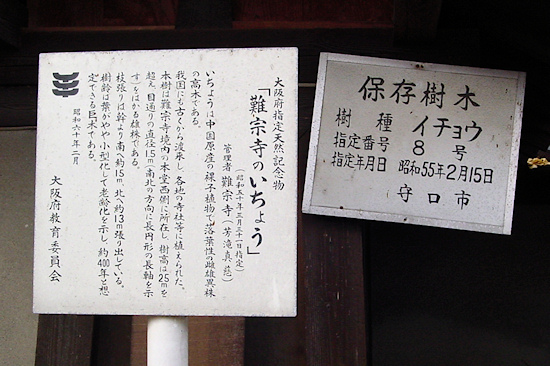 大阪府指定天然記念物
「難宗寺のいちょう」
(昭和五十年三月三十一日指定)
管理者 難宗寺(芳滝真慈)
いちょうは中国原産の裸子植物で落葉性の雌雄異株
の高木である。
我国にも古くから渡来し、各地の寺社等に植えられた。
本樹は難宗寺境内の本堂西側に所在し、樹高は25mを
超え、目通りの直径1.5m、南北の方向に長円形の長軸を示
す)をはかる雄株である。
枝張りは幹より南へ約15m、北へ約13m張り出している。
樹齢は葉がやや小型化して老齢化を示し、約400年と想
定できる巨木である。
昭和六十年二月
大阪府教育委員会
保存樹木
樹種 イチョウ
指定番号 8号
指定年月日 昭和55年2月15日
守口市